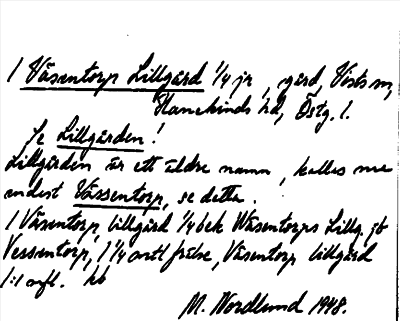 1 Väsentorp Lillgård 1/4 jr, gård, Vists sn,
Hanekinds hd, Östg. l.
Je Lillgården!
Lillgården är ett äldre namn, kallas nu
endast Västentorp, se detta.
1 Väsentorp, lillgård 1/4 bek Wäsentorps Lillg. jb
Vessentorp, 1 1/4 ortl frälse, Väsentorp lillgård
1:1 avfl. kb
M. Nordlund 1948.